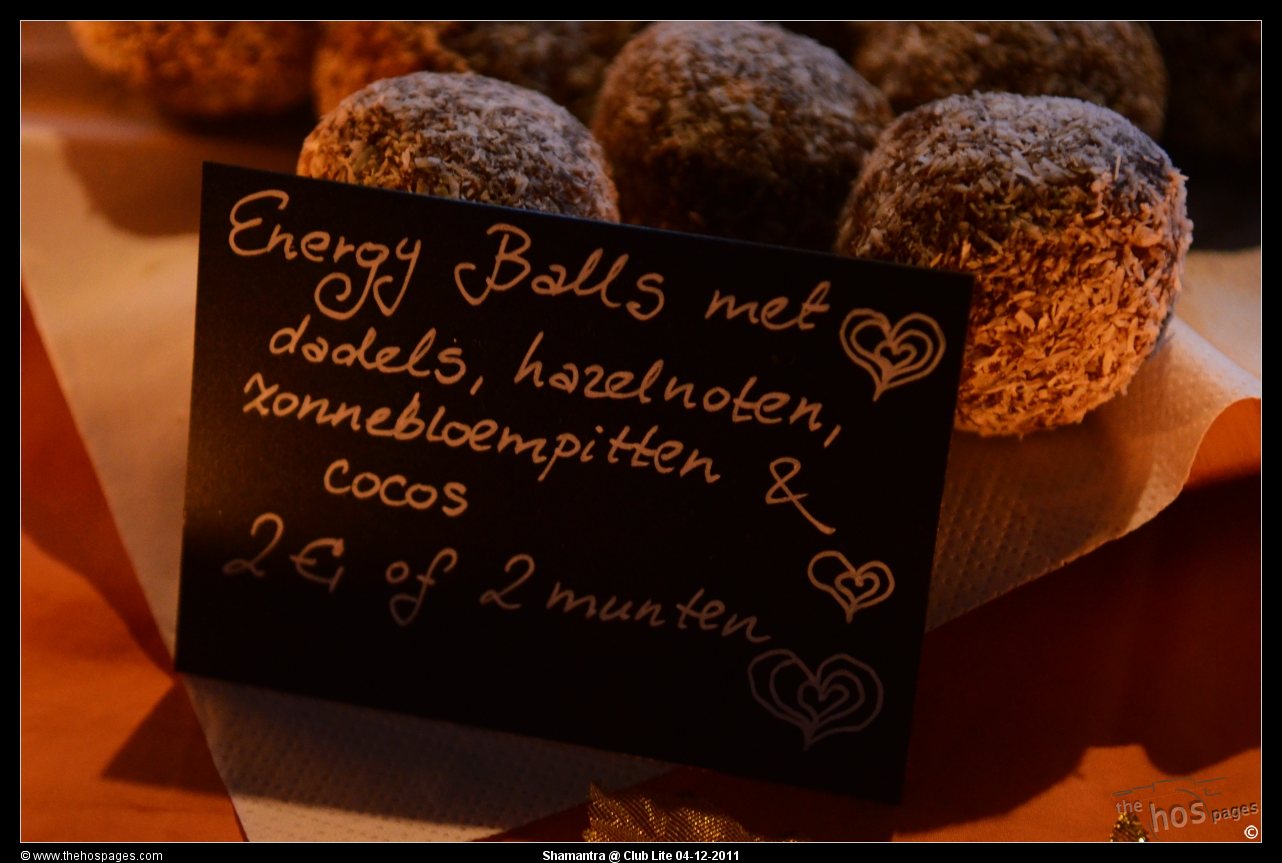 Energy Balls met
dadels, hazelnoten,
zonnebloempitten &
cocos
2 € of 2 munten
the hos pages
©
© www.thehospages.com
Shamantra @ Club Lite 04-12-2011